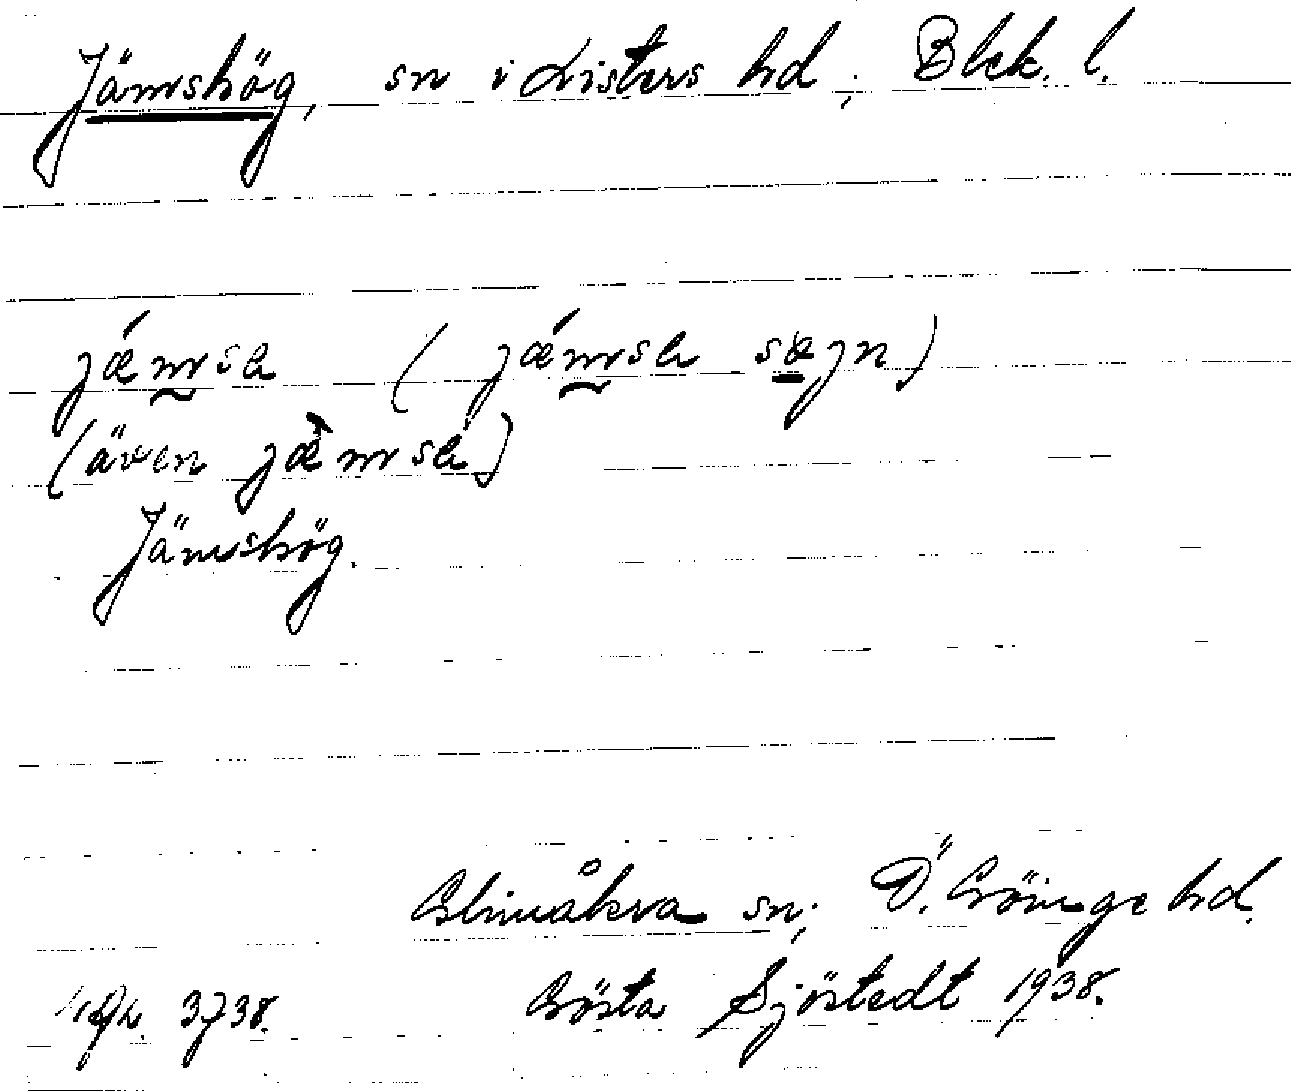 Jämshög, sn i Listers hd; Blek. l.
jǽmsa (jǽmsa sægn)
(även jæ̀msa)
Jämshög.
Glimåkra sn; Ö. Göinge hd.
3738. Gösta Sjöstedt 1938.